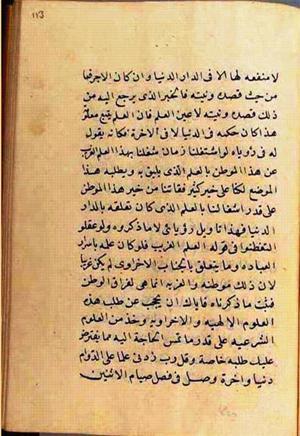 ١١٣
لا منفعه لها الا فى الدار الدنيا وان كان الاجر فيها
من حيث قصده ونيته فالخير الذى يرجع اليه من
ذلك قصده ونيته لا عين العلم فان العلم يتبع معلومه
هذا كان حكمه فى الدنيا لا فى الاخرة فكانه يقول
له فى رؤياه لو اشتغلنا زمان شغلنا بهذا العلم الغريب
عن هذا الموطن بالعلم الذى يليق به ويطلبه هذا
الموضع لكنا على خير كثير ففاتنا من خير هذا الموطن
على قدر اشتغالنا بالعلم الذى كان تعلقه بالدار
الدنيا فهذا تاويل رؤيا الرائى لا ما ذكروه ولو عقلوا
لتفطنوا فى قوله العلم الغريب فلو كان علمه باسرار
العباده وما يتعلق بالجناب الاخراوى لم يكن غريبا
لان ذلك موطنه والغربه انما هى لفراق الوطن
فثبت ما ذكرناه فاياك ان تحجب عن طلب هذه
العلوم الالهيه والاخراويه وخذ من العلوم
الشرعيه على قدر ما تمس الحاجة اليه مما يفترض
عليك طلبه خاصة وقل رب زدنى علما على الدوام
دنيا واخرة وصل فى فصل صيام الاثنين